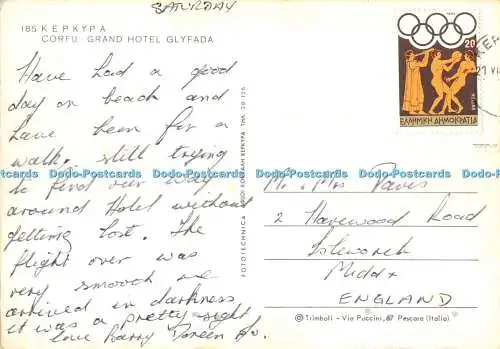 SATURDAY
185 ΚΕΡΚΥΡΑ
CORFU - GRAND HOTEL GLYFADA
Have had a good
day on beach and
have been for a
walk. still trying
to find our way
around Hotel without
getting lost. The
flight over was
very smooth we
arrived in darkness
it was a pretty sight
love Barry Doreen
20
ΕΛΛΗΝΙΚΗ ΔΗΜΟΚΡΑΤΙΑ
ΚΕΡ
21 VI
Mr & Mrs Davis
2 Harewood Road
Isleworth
Middx
ENGLAND
FOTOTECHNICA
© Trimboli - Via Puccini, 67 Pescara (Italia)
Dodo-Postcards Dodo-Postcards Dodo-Postcards Dodo-Postcards Dodo-Postcards